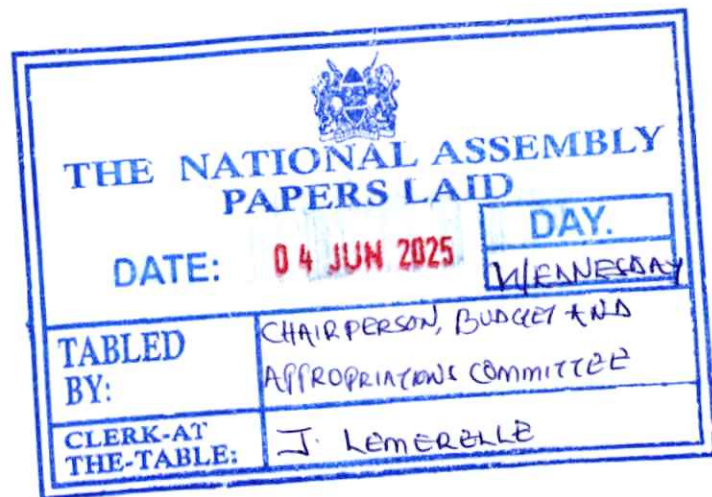 THE NATIONAL ASSEMBLY
PAPERS LAID
DATE: 04 JUN 2025
DAY.
WEDNESDAY
TABLED BY:
CHAIRPERSON, BUDGET AND
APPROPRIATIONS COMMITTEE
CLERK-AT THE-TABLE:
J. LEMERELLE